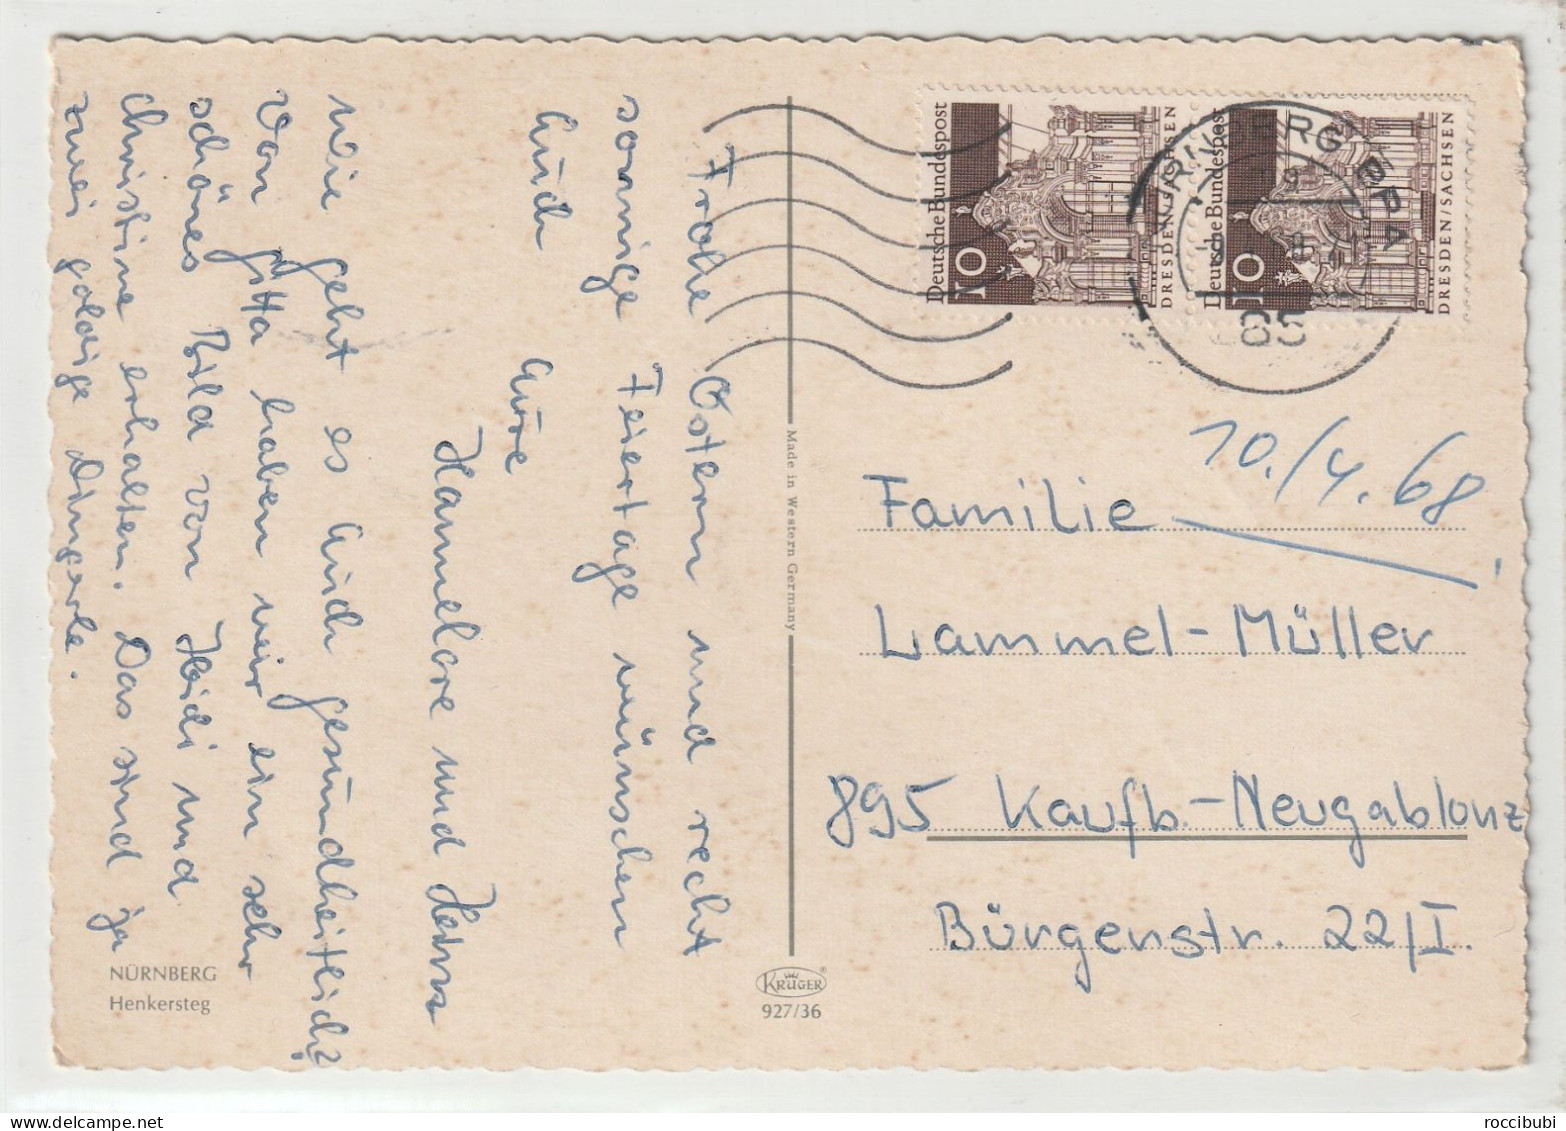 Frohe Ostern und recht
sonnige Feiertage wünschen
Euch Eure
Hannelore und Hans
wie geht es Euch gesundheitlich?
Von Gitta haben wir ein sehr
schönes Bild von Heidi und
Christine erhalten. Das sind ja
zwei goldige Dingerle.
NÜRNBERG
Henkersteg
Made in Western Germany
KRÜGER
927/36
Deutsche Bundespost
10
DRESDEN/SACHSEN
Deutsche Bundespost
10
DRESDEN/SACHSEN
85
10./4. 68
Familie
Lammel-Müller
895 Kaufb.-Neugablonz
Bürgenstr. 22/I.
roccibubi